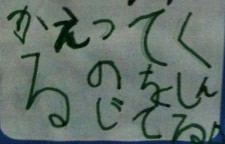 かえってく
るのをしん
じてる